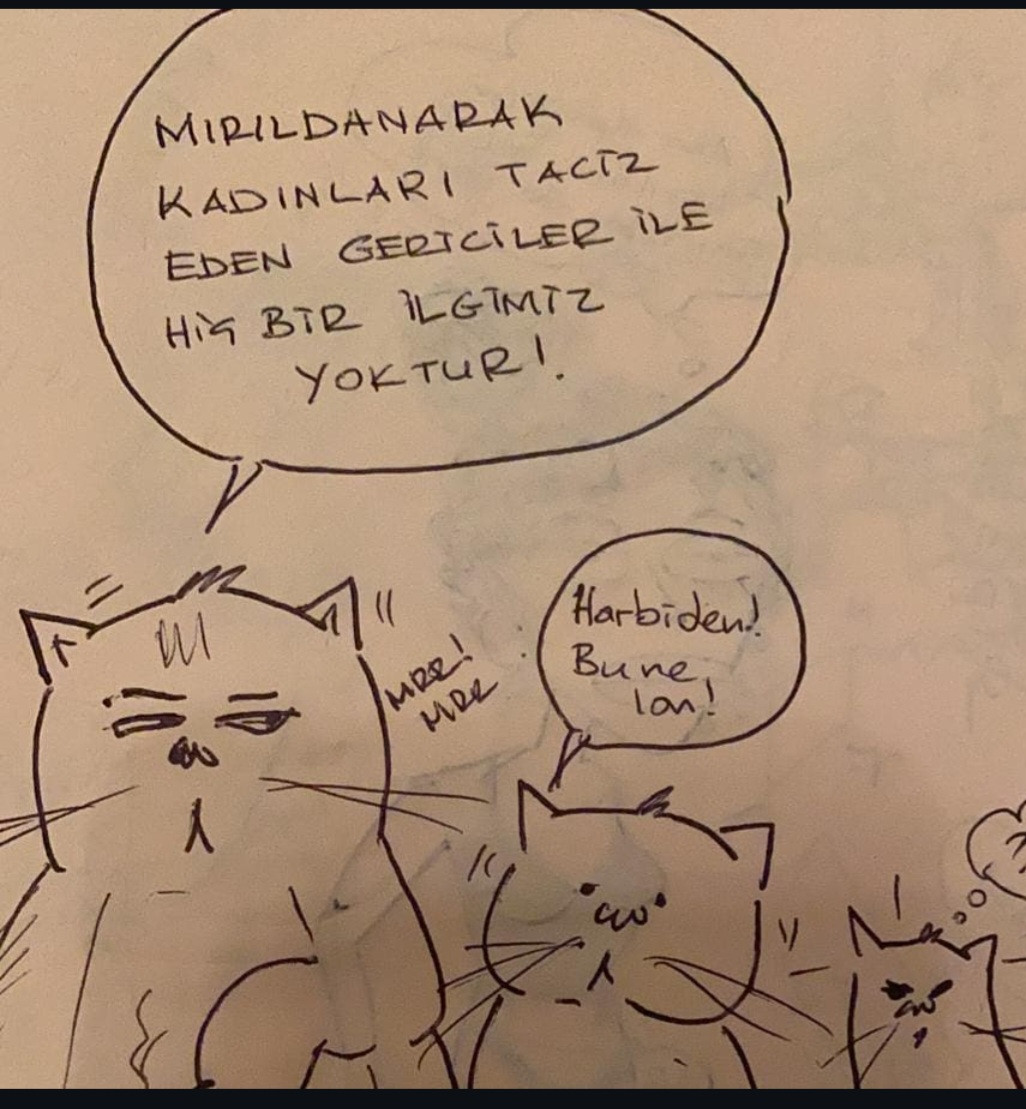 MIRILDANARAK
KADINLARI TACİZ
EDEN GERİCİLER İLE
HİÇ BİR İLGİMİZ
YOKTUR!
MRR!
MRR
Harbiden!
Bu ne,
lan!